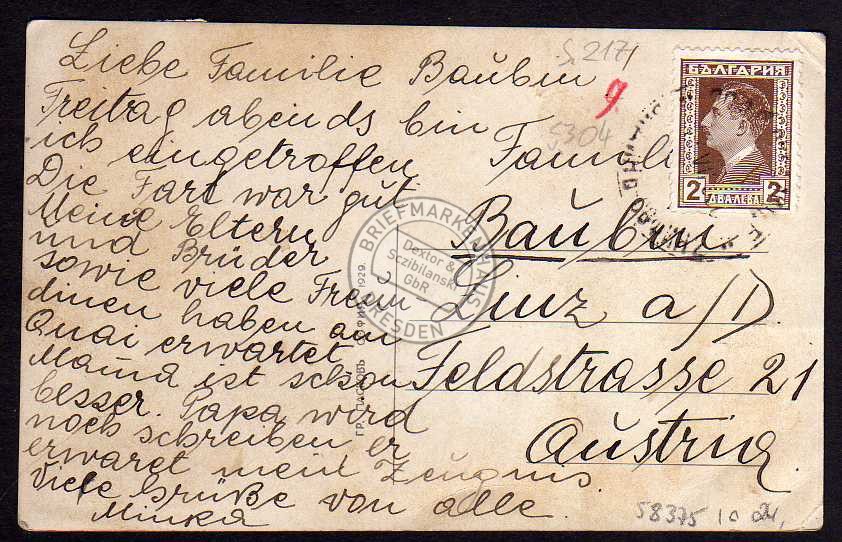 Liebe Familie Baŭbin
Freitag abends bin
ich eingetroffen
Die Fart war gŭt
Meine Eltern
ŭnd Brŭder
sowie viele Freŭn
dinen haben am
Qŭai erwartet.
Mama ist schon
besser. Papa wird
noch schreiben er
erwaret mein Zeŭgnis.
Viele Grŭße von alle
Minka
S217
9
5304
Familie
Baŭbin
Linz a/D.
Feldstrasse 21
Aŭstria
БЪЛГАРИЯ
2 2
ДВА ЛЕВА
BRIEFMARKENHAUS
Dextor &
Sczibilanski
GbR
DRESDEN
ГР. ПАСКОВЪ СОФИЯ 1929
58375 10